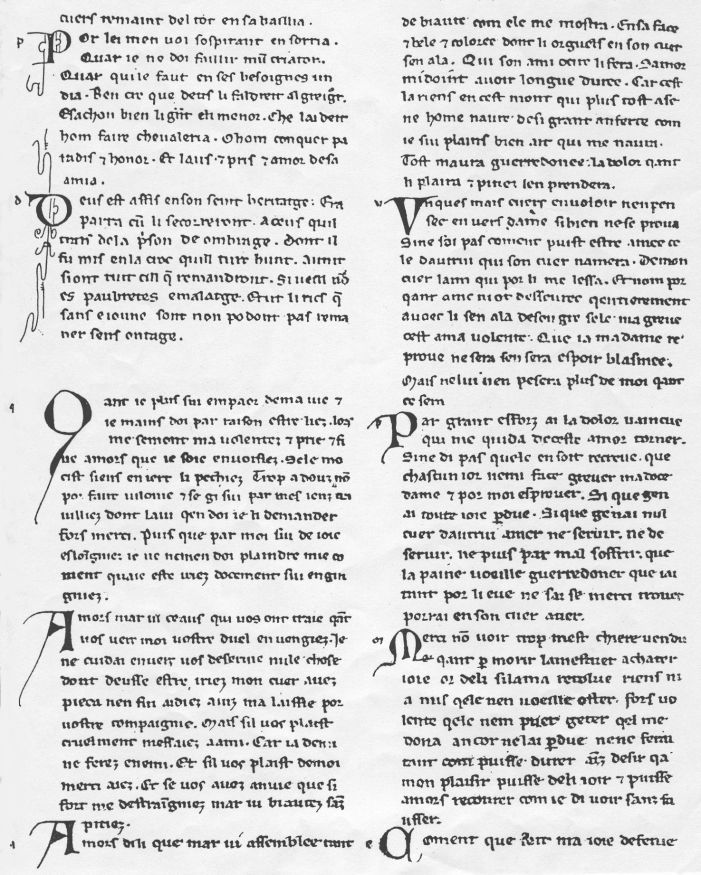 cuers remaint del tot en sa baillia .
P or lei men voi sospirant en sorria .
Quar ie ne doi faillir mũ criator .
Quar qui le faut en ses besoignes un
dia . Ben cre que deus li faldreit al greignr .
E sachon bien li grñt eli menor . Che lai deit
hom faire chevaleria . Ohom conquer pa
radis ⁊ honor . Et laus ⁊ pris ⁊ amor desa
amia .
D eus est assis en son seint heritatge : Era
parra cũ li secorreront . Aceus quil
trais dela p̃son de ombrage . Dont il
fu mis en la croc quill turc hunt . Aunit
siont tuit cill q̃ remandront . Si uell nõ
es paubretes emalatge . Et uit li ric q̃
sans e ioune sont non podont pas rema
ner sens ontage .
Q ant ie plus sui empaor de ma uie ⁊
ie mains doi par raison estre liez . lors
me sement ma uolentez ⁊ prie ⁊ fi
ne amors que ie soie enuoisiez . Sele mo
cist siens en iert li pechiez Trop a douz nõ
por faire uilonie ⁊ se gi sui par mes ieuz tra
uilliez dont laui qen doi ie li demander
fors merci . Puis que par moi sui de ioie
esloignie : ie ne neinen doi plaindre mie co
ment quaie este uiez docement sui engin
gniez .
A mors mar ui ceaus qui vos ont traie qãt
uos ueit moi uostre duel en uengiez . Ie
ne cuidai enuers vos deseruie nule chose
dont deusse estre iriez mon cuer auez
pieca nen fin aidiez ainz ma laissie por
uostre compaignie . Mais sil uos plaist
cruelment messaiez a ami . Car ia de mi
ne ferez enemi . Et sil vos plaist demoi
merci aiez . Et se vos auez anuie que si
fort me destraigniez mar ui biautez sãz
pitiez .
A mors dih que mar ui assemblee tant
de biaute com ele me mostra . En sa face
⁊ bele ⁊ coloree dont li orguels en son cuer
sen ala . Qui son ami ocire li fera . Samor
mi doint auoir longue duree . Car cest
la riens en cest mont qui plus tost ase
ne home naure desi grant anferte com
ie sui plains bien art qui me naura .
Tost maura guerredonee : la dolor qant
li plaira ⁊ pitiez len prendera .
V nques mais cuers enuoloir nen pen
sec en uers dame si bien ne se proua
Sine soi pas coment puist estre amee ce
le dautrui qui son cuer namera . Demon
cuer laim qui por li me lessa . Et nom por
qant ame niot desseuree q entierement
auoec li sen ala deson gre sele ma greue
cest ama volente . Que ia madame re
proue ne sera sen sera espoir blasmee .
Mais nelui nen pesera plus de moi qant
ce sem
P ar grant efforz ai la dolor uaincue
qui me quida deceste amor torner .
Sine di pas quele en soit recreue . que
chascun ior nemi face greuer madoce
dame ⁊ por moi esprouer . Si que gen
ai toute ioie p̱due . Si que gen ai nul
cuer dautrui amer ne seruir . ne de
seruir . ne puis par mal soffrir . que
la paine uoeille guerredoner que iai
tant por li eue ne sai se merci trouer
porrai en son cuer auer .
M erci nõ voir trop mest chiere vendue
qant p̱ morir lamestuet achater
ioie or deli silama retolue riens ni
a mis qele nen uoeille oster . fors uo
lente qele nem puet geter qel me
dona ancor ne lai p̱due ne ne ferai
tant com puisse durer aiz desir qa
mon plaisir puisse deli ioir ⁊ puisse
amors recourer com ie di voir sanz fa
usser .
C oment que soit ma ioie defenue